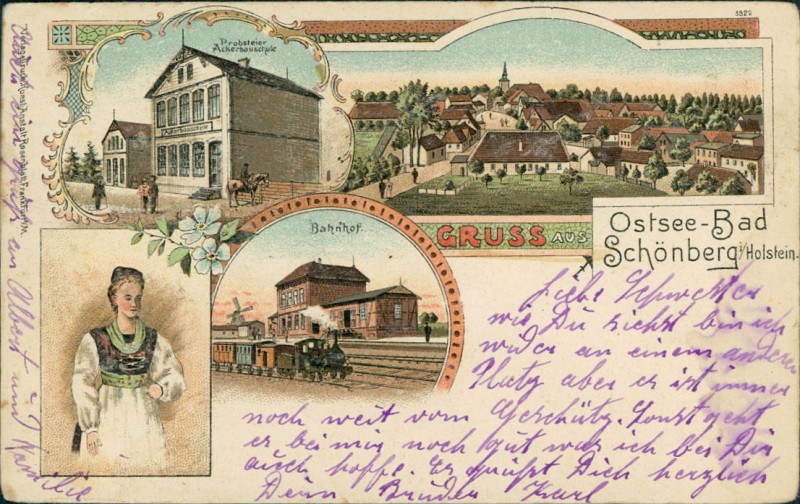 1822
Probsteier
Ackerbauschule
Ackerbauschule
Bahnhof.
GRUSS AUS
Ostsee-Bad
Schönberg i/Holstein.
Liebe Schwester
wie Du siehst bin ich
wider an einem anderen
Platz aber es ist immer
noch weit vom Geschütz. Sonst geht
es bei mir noch gut was ich bei Dir
auch hoffe. Es grüßt Dich herzlich
Dein Bruder Karl
einen Gruß an Albert und Familie